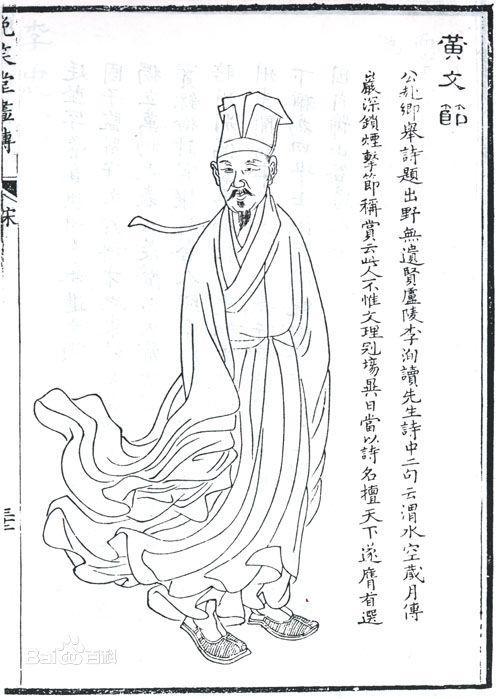 黃文節
公赴鄉舉詩題出野無遺賢廬陵李洵讀先生詩中二句云渭水空藏月傳
巖深鎖煙擊節稱賞云此人不惟文理冠場異日當以詩名擅天下遂膺首選
晚笑堂畫傳
宋
Bai百科